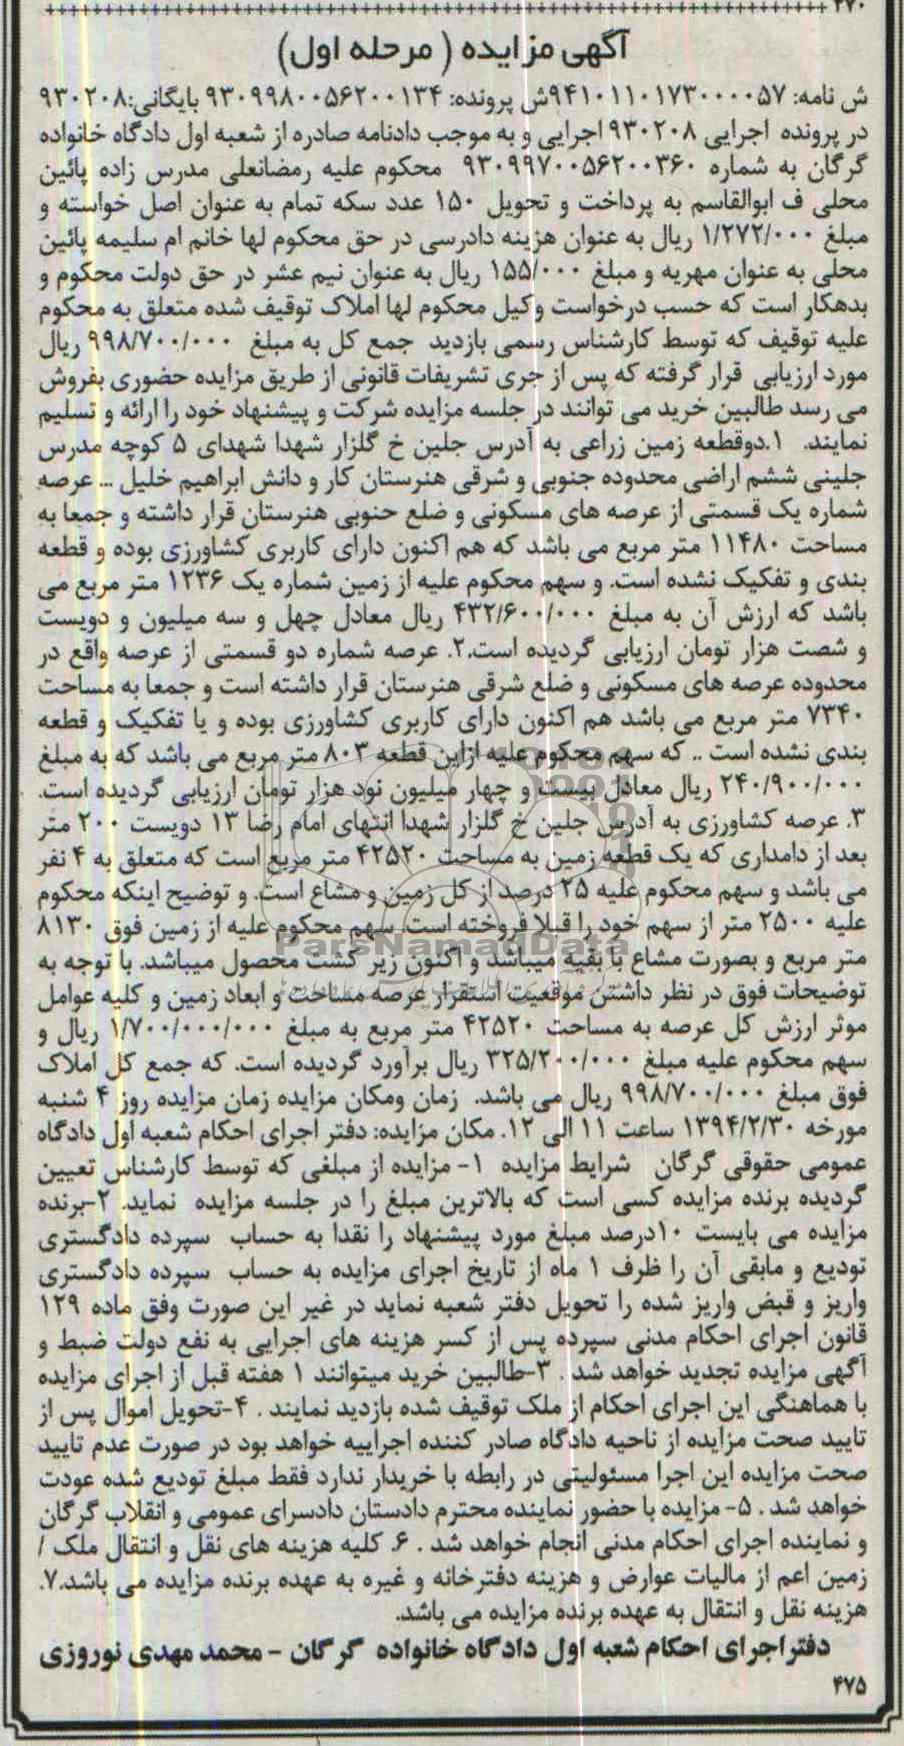 ۲۷۰
آگهی مزایده ( مرحله اول)
ش نامه: ۹۴۱۰۱۱۰۱۷۳۰۰۰۰۵۷ش پرونده: ۹۳۰۹۹۸۰۰۵۶۲۰۰۱۳۴ بایگانی:۹۳۰۲۰۸
در پرونده اجرایی ۹۳۰۲۰۸ اجرایی و به موجب دادنامه صادره از شعبه اول دادگاه خانواده
گرگان به شماره ۹۳۰۹۹۷۰۰۵۶۲۰۰۳۶۰ محکوم علیه رمضانعلی مدرس زاده پائین
محلی ف ابوالقاسم به پرداخت و تحویل ۱۵۰ عدد سکه تمام به عنوان اصل خواسته و
مبلغ ۱/۲۷۲/۰۰۰ ریال به عنوان هزینه دادرسی در حق محکوم لها خانم ام سلیمه پائین
محلی به عنوان مهریه و مبلغ ۱۵۵/۰۰۰ ریال به عنوان نیم عشر در حق دولت محکوم و
بدهکار است که حسب درخواست وکیل محکوم لها املاک توقیف شده متعلق به محکوم
علیه توقیف که توسط کارشناس رسمی بازدید جمع کل به مبلغ ۹۹۸/۷۰۰/۰۰۰ ریال
مورد ارزیابی قرار گرفته که پس از جری تشریفات قانونی از طریق مزایده حضوری بفروش
می رسد طالبین خرید می توانند در جلسه مزایده شرکت و پیشنهاد خود را ارائه و تسلیم
نمایند. ۱.دوقطعه زمین زراعی به آدرس جلین خ گلزار شهدا شهدای ۵ کوچه مدرس
جلینی ششم اراضی محدوده جنوبی و شرقی هنرستان کار و دانش ابراهیم خلیل ... عرصه
شماره یک قسمتی از عرصه های مسکونی و ضلع حنوبی هنرستان قرار داشته و جمعا به
مساحت ۱۱۴۸۰ متر مربع می باشد که هم اکنون دارای کاربری کشاورزی بوده و قطعه
بندی و تفکیک نشده است. و سهم محکوم علیه از زمین شماره یک ۱۲۳۶ متر مربع می
باشد که ارزش آن به مبلغ ۴۳۲/۶۰۰/۰۰۰ ریال معادل چهل و سه میلیون و دویست
و شصت هزار تومان ارزیابی گردیده است.۲. عرصه شماره دو قسمتی از عرصه واقع در
محدوده عرصه های مسکونی و ضلع شرقی هنرستان قرار داشته است و جمعا به مساحت
۷۳۴۰ متر مربع می باشد هم اکنون دارای کاربری کشاورزی بوده و یا تفکیک و قطعه
بندی نشده است .. که سهم محکوم علیه ازاین قطعه ۸۰۳ متر مربع می باشد که به مبلغ
۲۴۰/۹۰۰/۰۰۰ ریال معادل بیست و چهار میلیون نود هزار تومان ارزیابی گردیده است.
۳. عرصه کشاورزی به آدرس جلین خ گلزار شهدا انتهای امام رضا ۱۳ دویست ۲۰۰ متر
بعد از دامداری که یک قطعه زمین به مساحت ۴۲۵۲۰ متر مربع است که متعلق به ۴ نفر
می باشد و سهم محکوم علیه ۲۵ درصد از کل زمین و مشاع است. و توضیح اینکه محکوم
علیه ۲۵۰۰ متر از سهم خود را قبلا فروخته است. سهم محکوم علیه از زمین فوق ۸۱۳۰
ParsNamadData
متر مربع و بصورت مشاع با بقیه میباشد و اکنون زیر کشت محصول میباشد. با توجه به
توضیحات فوق در نظر داشتن موقعیت استقرار عرصه مساحت و ابعاد زمین و کلیه عوامل
موثر ارزش کل عرصه به مساحت ۴۲۵۲۰ متر مربع به مبلغ ۱/۷۰۰/۰۰۰/۰۰۰ ریال و
سهم محکوم علیه مبلغ ۳۲۵/۲۰۰/۰۰۰ ریال برآورد گردیده است. که جمع کل املاک
فوق مبلغ ۹۹۸/۷۰۰/۰۰۰ ریال می باشد. زمان ومکان مزایده زمان مزایده روز ۴ شنبه
مورخه ۱۳۹۴/۲/۳۰ ساعت ۱۱ الی ۱۲. مکان مزایده: دفتر اجرای احکام شعبه اول دادگاه
عمومی حقوقی گرگان شرایط مزایده ۱- مزایده از مبلغی که توسط کارشناس تعیین
گردیده برنده مزایده کسی است که بالاترین مبلغ را در جلسه مزایده نماید. ۲-برنده
مزایده می بایست ۱۰درصد مبلغ مورد پیشنهاد را نقدا به حساب سپرده دادگستری
تودیع و مابقی آن را ظرف ۱ ماه از تاریخ اجرای مزایده به حساب سپرده دادگستری
واریز و قبض واریز شده را تحویل دفتر شعبه نماید در غیر این صورت وفق ماده ۱۲۹
قانون اجرای احکام مدنی سپرده پس از کسر هزینه های اجرایی به نفع دولت ضبط و
آگهی مزایده تجدید خواهد شد . ۳-طالبین خرید میتوانند ۱ هفته قبل از اجرای مزایده
با هماهنگی این اجرای احکام از ملک توقیف شده بازدید نمایند . ۴-تحویل اموال پس از
تایید صحت مزایده از ناحیه دادگاه صادر کننده اجراییه خواهد بود در صورت عدم تایید
صحت مزایده این اجرا مسئولیتی در رابطه با خریدار ندارد فقط مبلغ تودیع شده عودت
خواهد شد . ۵- مزایده با حضور نماینده محترم دادستان دادسرای عمومی و انقلاب گرگان
و نماینده اجرای احکام مدنی انجام خواهد شد . ۶. کلیه هزینه های نقل و انتقال ملک /
زمین اعم از مالیات عوارض و هزینه دفترخانه و غیره به عهده برنده مزایده می باشد.۷.
هزینه نقل و انتقال به عهده برنده مزایده می باشد.
دفتر اجرای احکام شعبه اول دادگاه خانواده گرگان - محمد مهدی نوروزی
۴۷۵